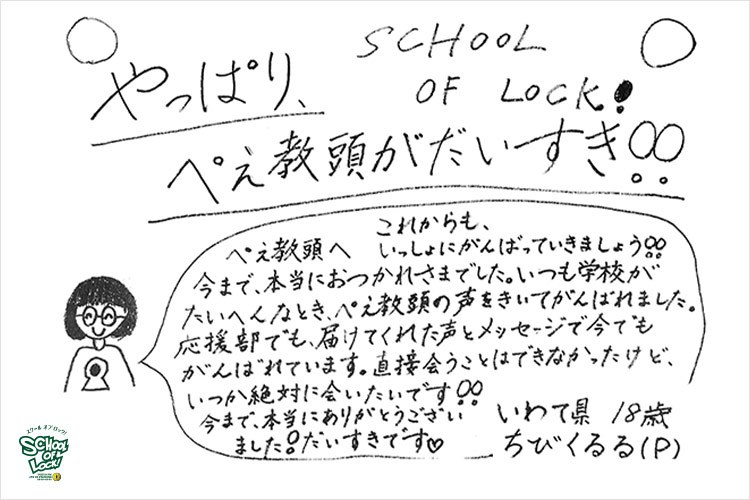 SCHOOL
OF LOCK!
やっぱり、
ぺえ教頭がだいすき!!
これからも、
ぺえ教頭へ いっしょにがんばっていきましょう!!
今まで、本当におつかれさまでした。いつも学校が
たいへんなとき、ぺえ教頭の声をきいてがんばれました。
応援部でも、届けてくれた声とメッセージで今でも
がんばれています。直接会うことはできなかったけど、
いつか絶対に会いたいです!!
今まで、本当にありがとうござい
ました!だいすきです♡
いわて県 18歳
ちびくるる(P)
スクール オブ ロック!
SCHOOL
OF
LOCK!